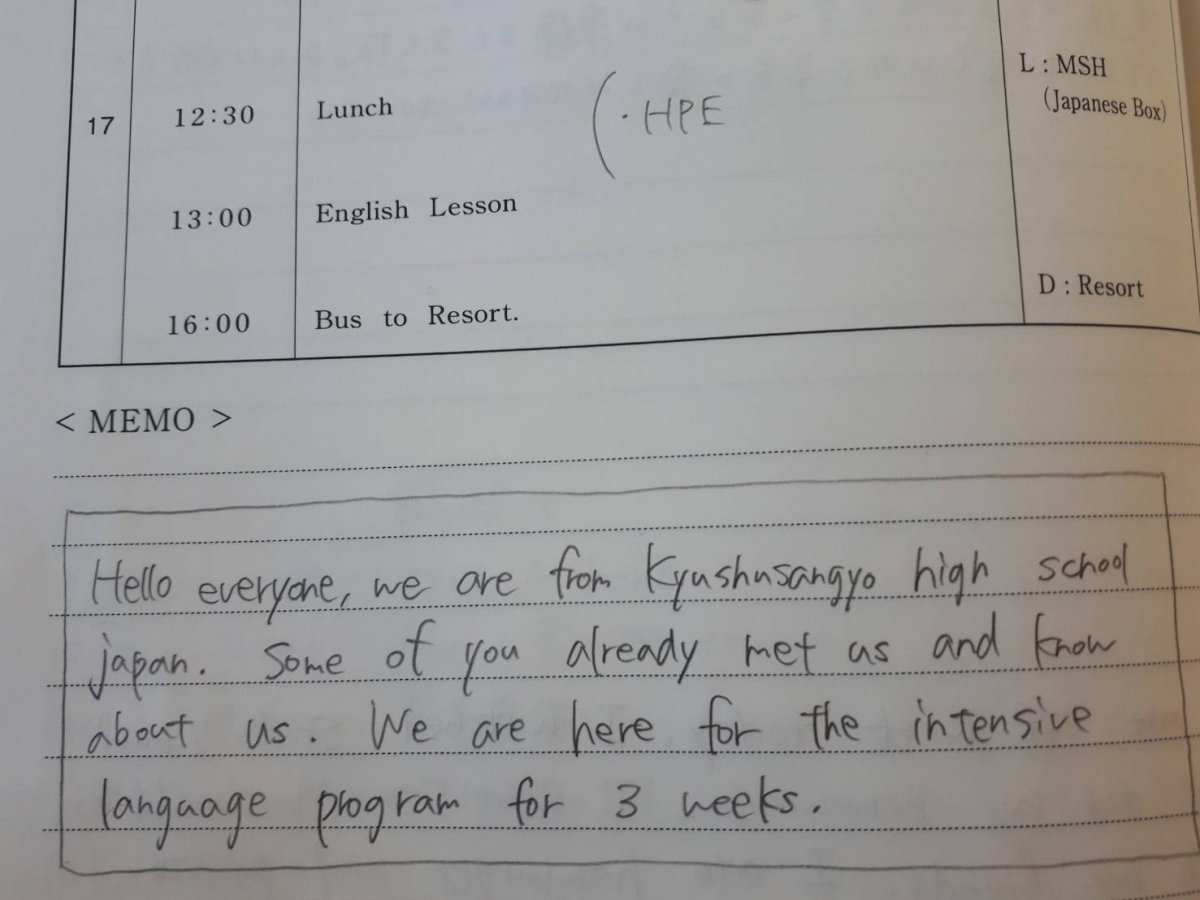 L : MSH
17 12:30 Lunch ( · HPE (Japanese Box)
13:00 English Lesson
D : Resort
16:00 Bus to Resort.
< MEMO >
Hello everyone, we are from Kyushusangyo high school
japan. Some of you already met us and know
about us. We are here for the intensive
language program for 3 weeks.